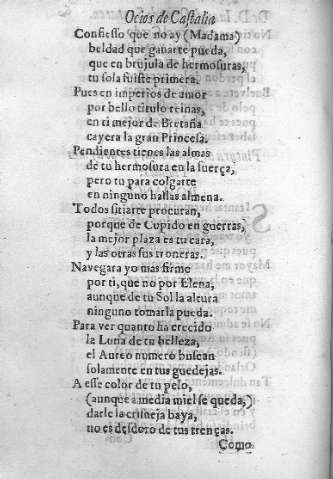 Ocios de Castalia
Confiesso que no ay (Madama)
beldad que ganarte pueda,
que en brujula de hermosuras,
tu sola fuiste primera.
Pues en imperios de amor
por bello titulo reinas,
en ti mejor de Bretaña
cayera la gran Princesa.
Pendientes tienes las almas
de tu hermosura en la fuerça,
pero tu para colgarte
en ninguno hallas almena.
Todos sitiarte procuran,
porque de Cupido en guerras,
la mejor plaza es tu cara,
y las otras sus troneras.
Navegara yo mas firme
por ti, que no por Elena,
aunque de tu Sol la altura
ninguno tomarla pueda.
Para ver quanto ha crecido
la Luna de tu belleza,
el Aureo numero buscan
solamente en tus guedejas.
A esse color de tu pelo,
(aunque a media miel se queda,)
darle la crisneja baya,
no es desdoro de tus trenças.
Como